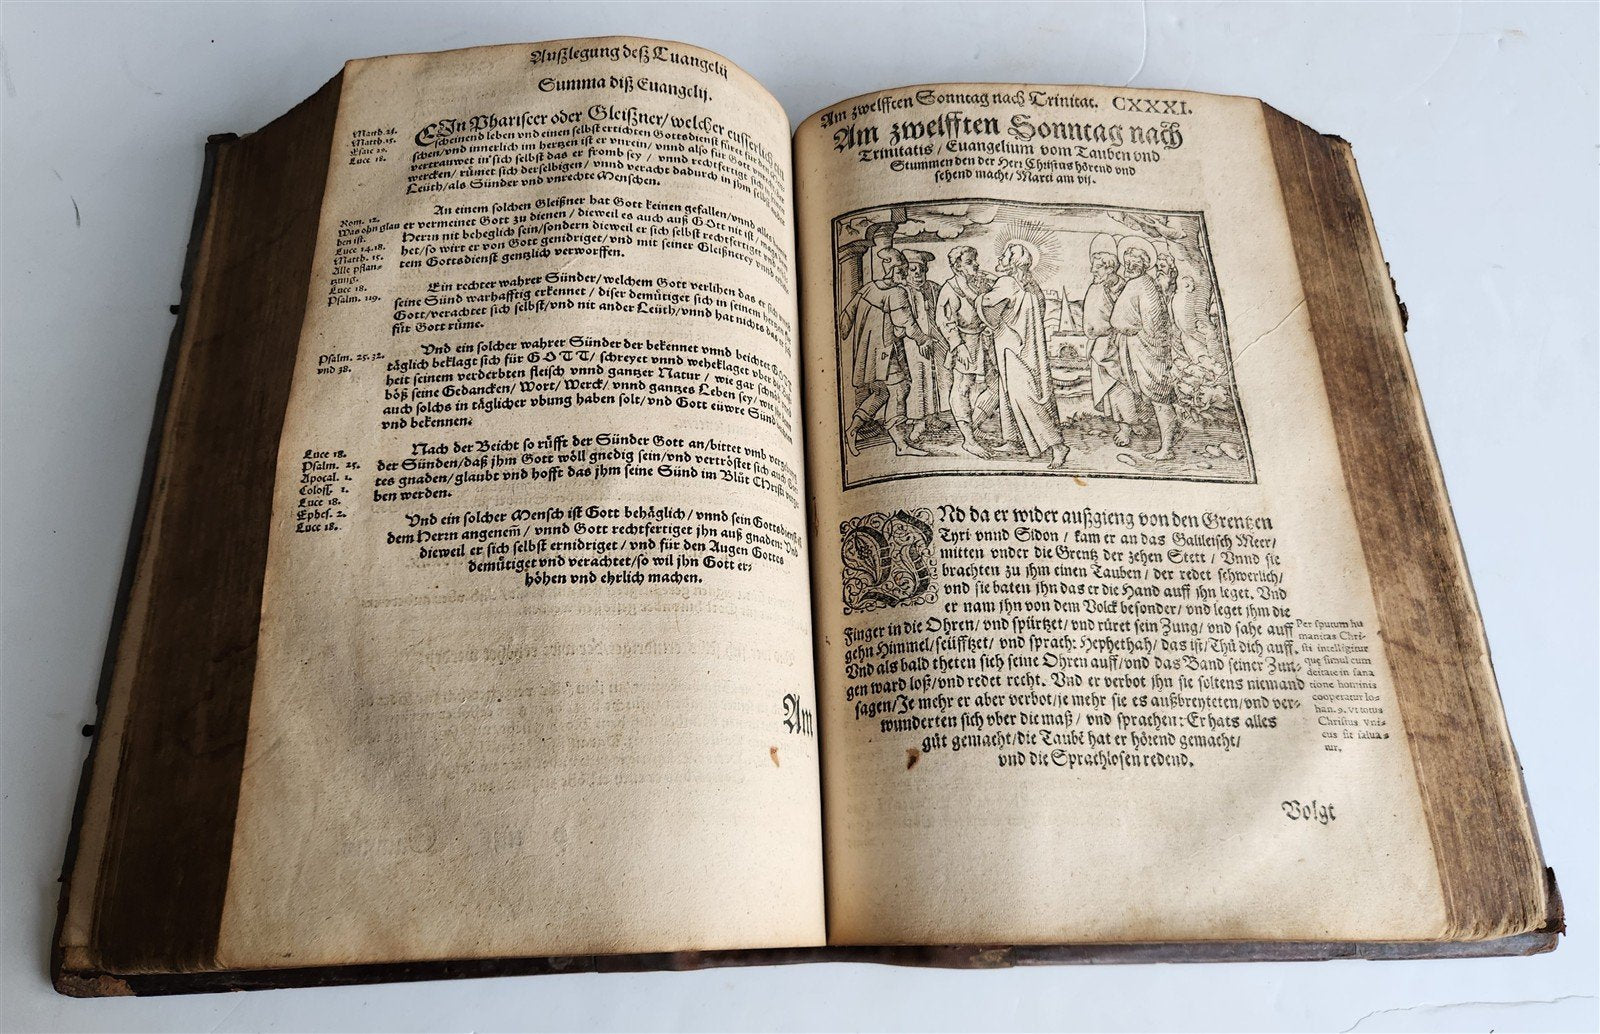 Außlegung deß Euangelij
Summa diß Euangelij.
EIn Phariseer oder Gleißner/ welcher eusserlich ein
scheinend leben vnd einen selbst ertichten Gottsdienst füret für den
schen/vnd innerlich im hertzen ist er vnrein/ vnnd also für Gott
vertrauwet in sich selbst das er fromb sey / vnnd rechtfertigt sich
wercken/ rümet sich derselbigen / vnnd veracht dadurch in jhm selbst
Leüth/als Sünder vnd vnrechte Menschen.
Matth. 23.
Matth. 15.
Esaie 29.
Luce 18.
An einem solchen Gleißner hat Gott keinen gefallen/vnnd alles
er vermeinet Gott zu dienen / dieweil es auch auß GOtt nit ist / mags
Herrn nit beheglich sein/sondern dieweil er sich selbst rechtfertiget vnd
het/so wirt er von Gott genidriget/vnd mit seiner Gleißnerey vnnd
tem Gottsdienst gentzlich verworffen.
Rom. 12.
Was ohn glau
ben ist.
Luce 14.18.
Matth. 15.
Alle pflan-
tzung.
Luce 18.
Psalm. 119.
Ein rechter wahrer Sünder/welchem Gott verlihen das er sich
seine Sünd warhafftig erkennet / diser demütiget sich in seinem hertzen
Gott/verachtet sich selbst/vnd nit ander Leüth/vnnd hat nichts das er
für Gott rüme.
Vnd ein solcher wahrer Sünder der bekennet vnnd beichtet
täglich beklagt sich für GOTT/ schreyet vnnd weheklaget vber die
heit seinem verderbten fleisch vnnd gantzer Natur / wie gar schnöd
böß seine Gedancken/ Wort/ Werck/ vnnd gantzes Leben sey/
auch solchs in täglicher vbung haben solt/vnd Gott eüwre Sünd
vnd bekennen.
Psalm. 25.32.
vnd 38.
Nach der Beicht so rüfft der Sünder Gott an/bittet vmb
der Sünden/daß jhm Gott wöll gnedig sein/vnd vertröstet sich auch
tes gnaden/ glaubt vnd hofft das jhm seine Sünd im Blüt Christi
ben werden.
Luce 18.
Psalm. 25.
Apocal. 1.
Coloss. 1.
Luce 18.
Ephes. 2.
Luce 18.
Vnd ein solcher Mensch ist Gott behäglich/ vnnd sein Gottsdienst
dem Herrn angenem̄ / vnnd Gott rechtfertiget jhn auß gnaden: Vnd
dieweil er sich selbst ernidriget / vnd für den Augen Gottes
demütiget vnd verachtet/so wil jhn Gott er-
höhen vnd ehrlich machen.
Am
Am zwelfften Sonntag nach Trinitat. CXXXI.
Am zwelfften Sonntag nach
Trinitatis / Euangelium vom Tauben vnd
Stummen den der Herr Christus hörend vnd
sehend macht/ Marci am vij.
VNd da er wider außgieng von den Grentzen
Tyri vnnd Sidon / kam er an das Galileisch Meer/
mitten vnder die Grentz der zehen Stett / Vnnd sie
brachten zu jhm einen Tauben / der redet schwerlich/
vnd sie baten jhn das er die Hand auff jhn leget. Vnd
er nam jhn von dem Volck besonder/ vnd leget jhm die
Finger in die Ohren/ vnd spürtzet/ vnd rüret sein Zung/ vnd sahe auff
gehn Himmel/ seüfftzet/ vnd sprach: Hephethah/ das ist/ Thü dich auff.
Vnd als bald theten sich seine Ohren auff/vnd das Band seiner Zun-
gen ward loß/vnd redet recht. Vnd er verbot jhn sie soltens niemand
sagen/Je mehr er aber verbot/je mehr sie es außbreyteten/vnd ver-
wunderten sich vber die maß / vnd sprachen: Er hats alles
güt gemacht/die Taubē hat er hörend gemacht/
vnd die Sprachlosen redend.
Per sputum hu
manitas Chri-
sti intelligitur
quę simul cum
deitate in sana
tione hominis
cooperatur Io-
han. 9. vt totus
Christus vni-
cus sit salua-
tor.
Volgt